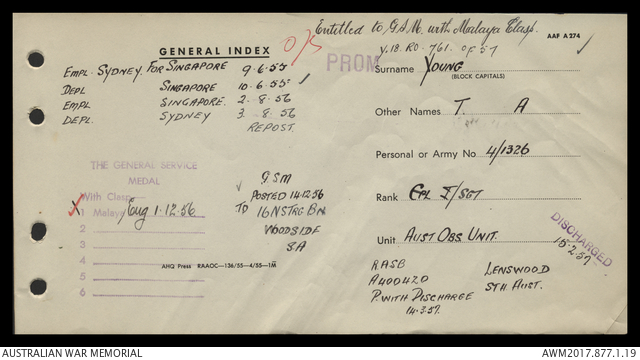 Entitled to G.S.M. with Malaya Clasp.
V.18. RO. 761. OF 57
AAF A 274
GENERAL INDEX
O/S
PROM
EMPL. SYDNEY FOR SINGAPORE 9.6.55
DEPL SINGAPORE 10.6.55
EMPL SINGAPORE. 2.8.56
DEPL. SYDNEY 3.8.56
REPOST.
Surname YOUNG
(BLOCK CAPITALS)
Other Names T. A
Personal or Army No 4/1326
Rank CPL T/SGT
Unit AUST OBS. UNIT.
DISCHARGED
15.2.57
THE GENERAL SERVICE
MEDAL
With Clasp
1 Malaya Eng 1.12.56
2
3
4
5
6
G.S.M
POSTED 14.12.56
TO 16 NSTRG BN
WOODSIDE
SA
RASB
A400420
P. WITH DISCHARGE
14.3.57.
LENSWOOD
STH AUST.
AHQ Press RAAOC—136/55—4/55—1M
AUSTRALIAN WAR MEMORIAL
AWM2017.877.1.19